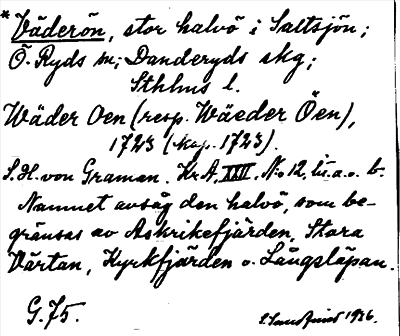 * Väderön, stor halvö i Saltsjön;
Ö. Ryds sn; Danderyds skg;
Sthlms l.
Wäder Oen (resp. Wäeder Öen),
1723 (kop. 1723).
S. H. von Graman. Kr. A. XXII, No 12, lit. a. o. b.
Namnet avsåg den halvö, som be-
gränsas av Askrikefjärden, Stora
Värtan, Kyrkfjärden o. Långsläpan.
G. 75.
1936.